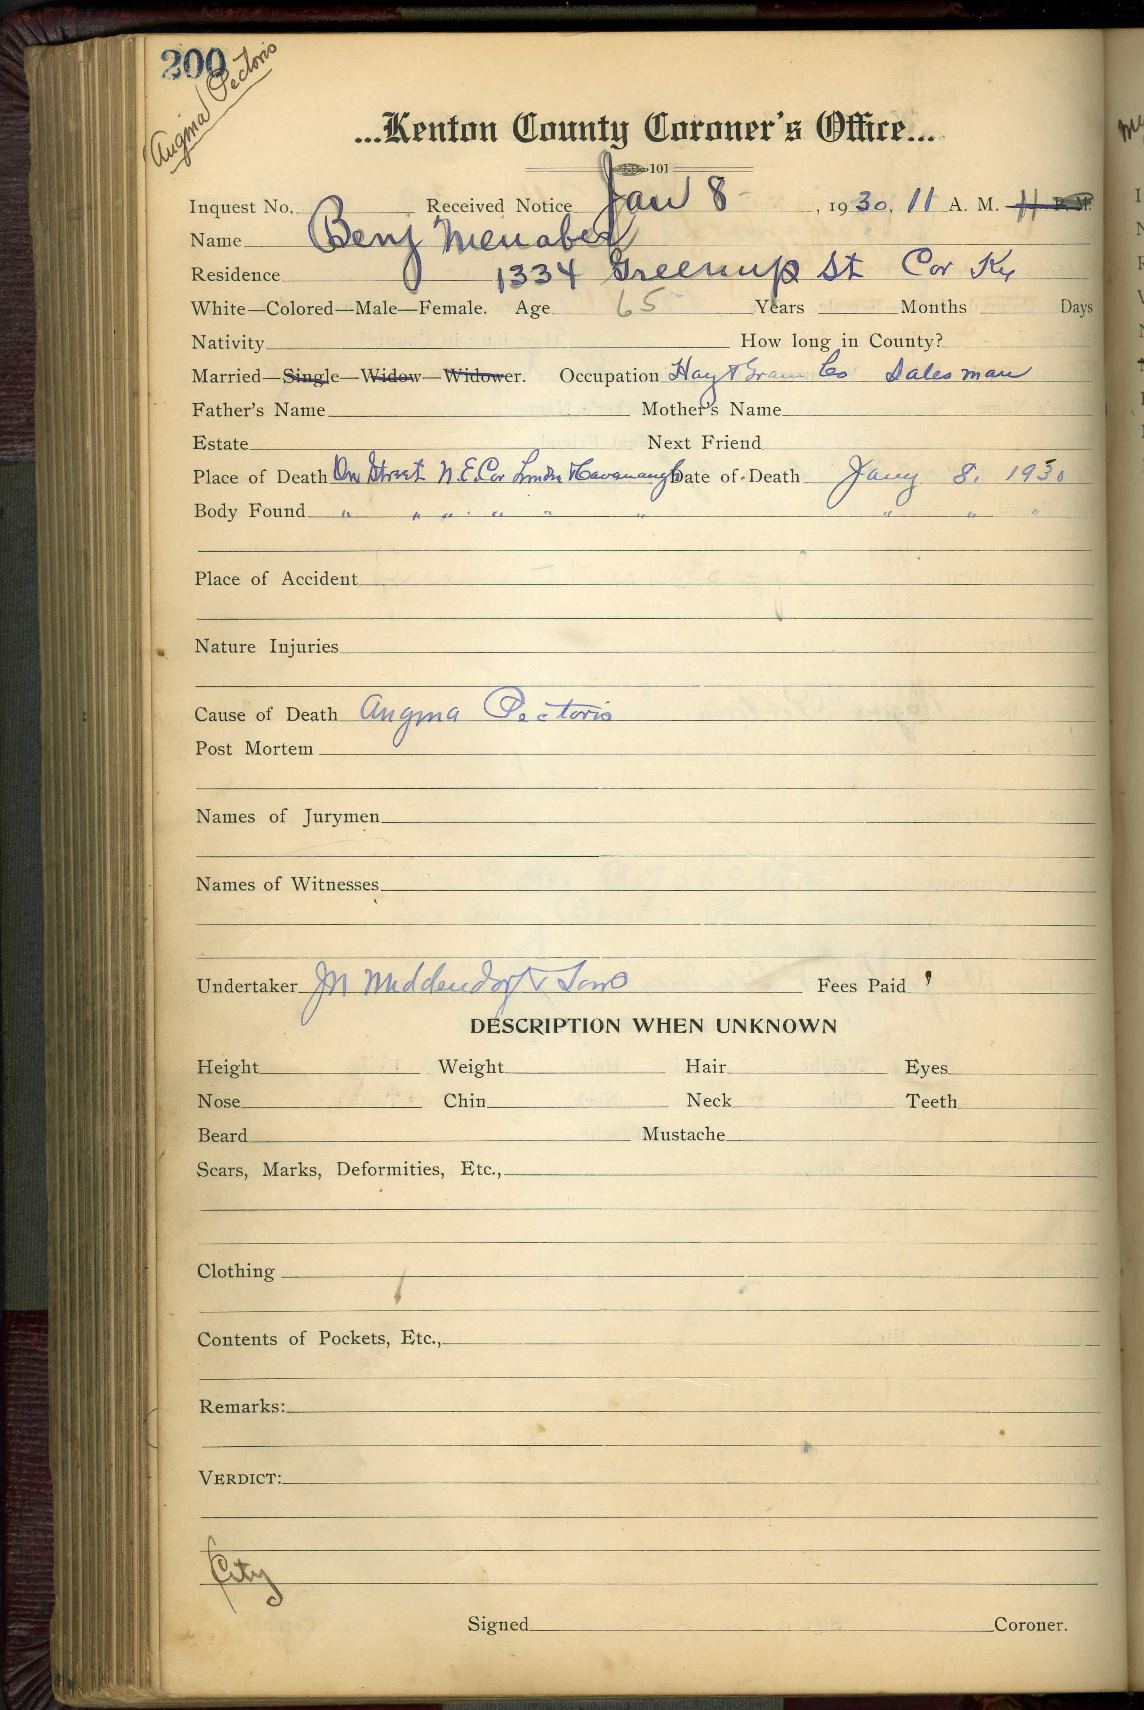 200
Angma Pectoris
...Kenton County Coroner's Office...
101
Inquest No. Received Notice Jan 8 - , 1930, 11 A. M. 11 P. M.
Name Benj Menaber
Residence 1334 Greenup St Cov Ky
White—Colored—Male—Female. Age 65 Years Months Days
Nativity How long in County?
Married—Single—Widow—Widower. Occupation Hay & Grain Co Salesman
Father's Name Mother's Name
Estate Next Friend
Place of Death On Street N.E. Cor & Cavanaugh Date of Death Jany 8, 1930
Body Found " " " " " " " " "
Place of Accident
Nature Injuries
Cause of Death Angma Pectoris
Post Mortem
Names of Jurymen
Names of Witnesses
Undertaker Jn Middendorf & Sons Fees Paid
DESCRIPTION WHEN UNKNOWN
Height Weight Hair Eyes
Nose Chin Neck Teeth
Beard Mustache
Scars, Marks, Deformities, Etc.,
Clothing
Contents of Pockets, Etc.,
Remarks:
VERDICT:
City
Signed Coroner.